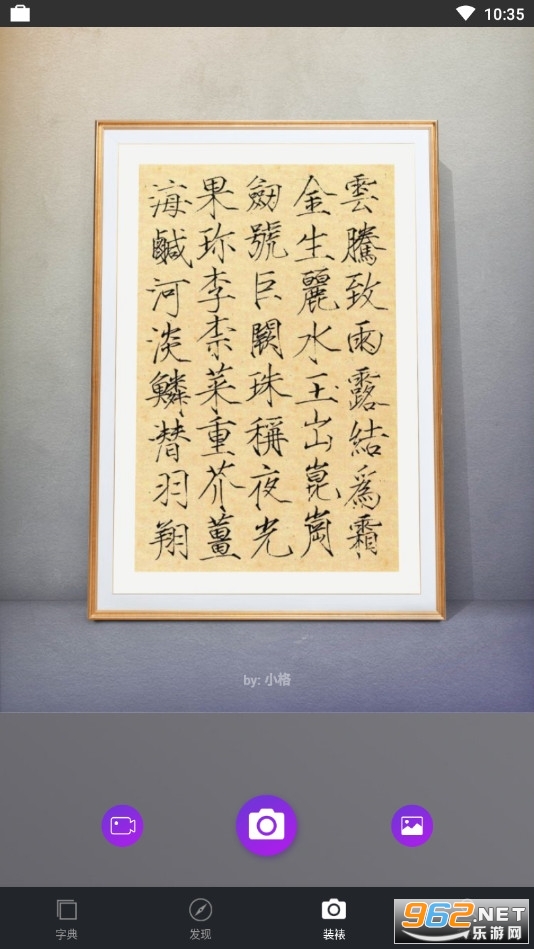 10:35
雲騰致雨露結爲霜
金生麗水玉出崑崗
劒號巨闕珠稱夜光
果珎李柰菜重芥薑
海鹹河淡鱗潛羽翔
by: 小格
字典
发现
装裱
962.NET
乐游网